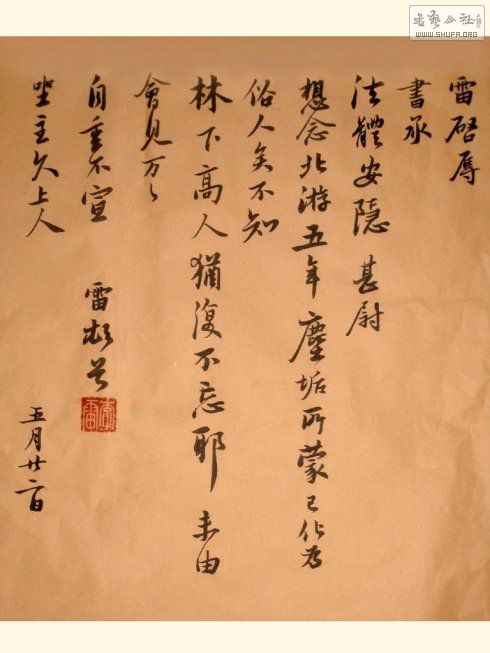 雷啓辱
書承
法體安隱甚尉
想念北游五年塵垢所蒙已化為
俗人矣不知
林下高人猶復不忘耶未由
會見万々
自重不宣 雷頓首
坐主久上人
五月廿二日
書藝公社
WWW.SHUFA.ORG